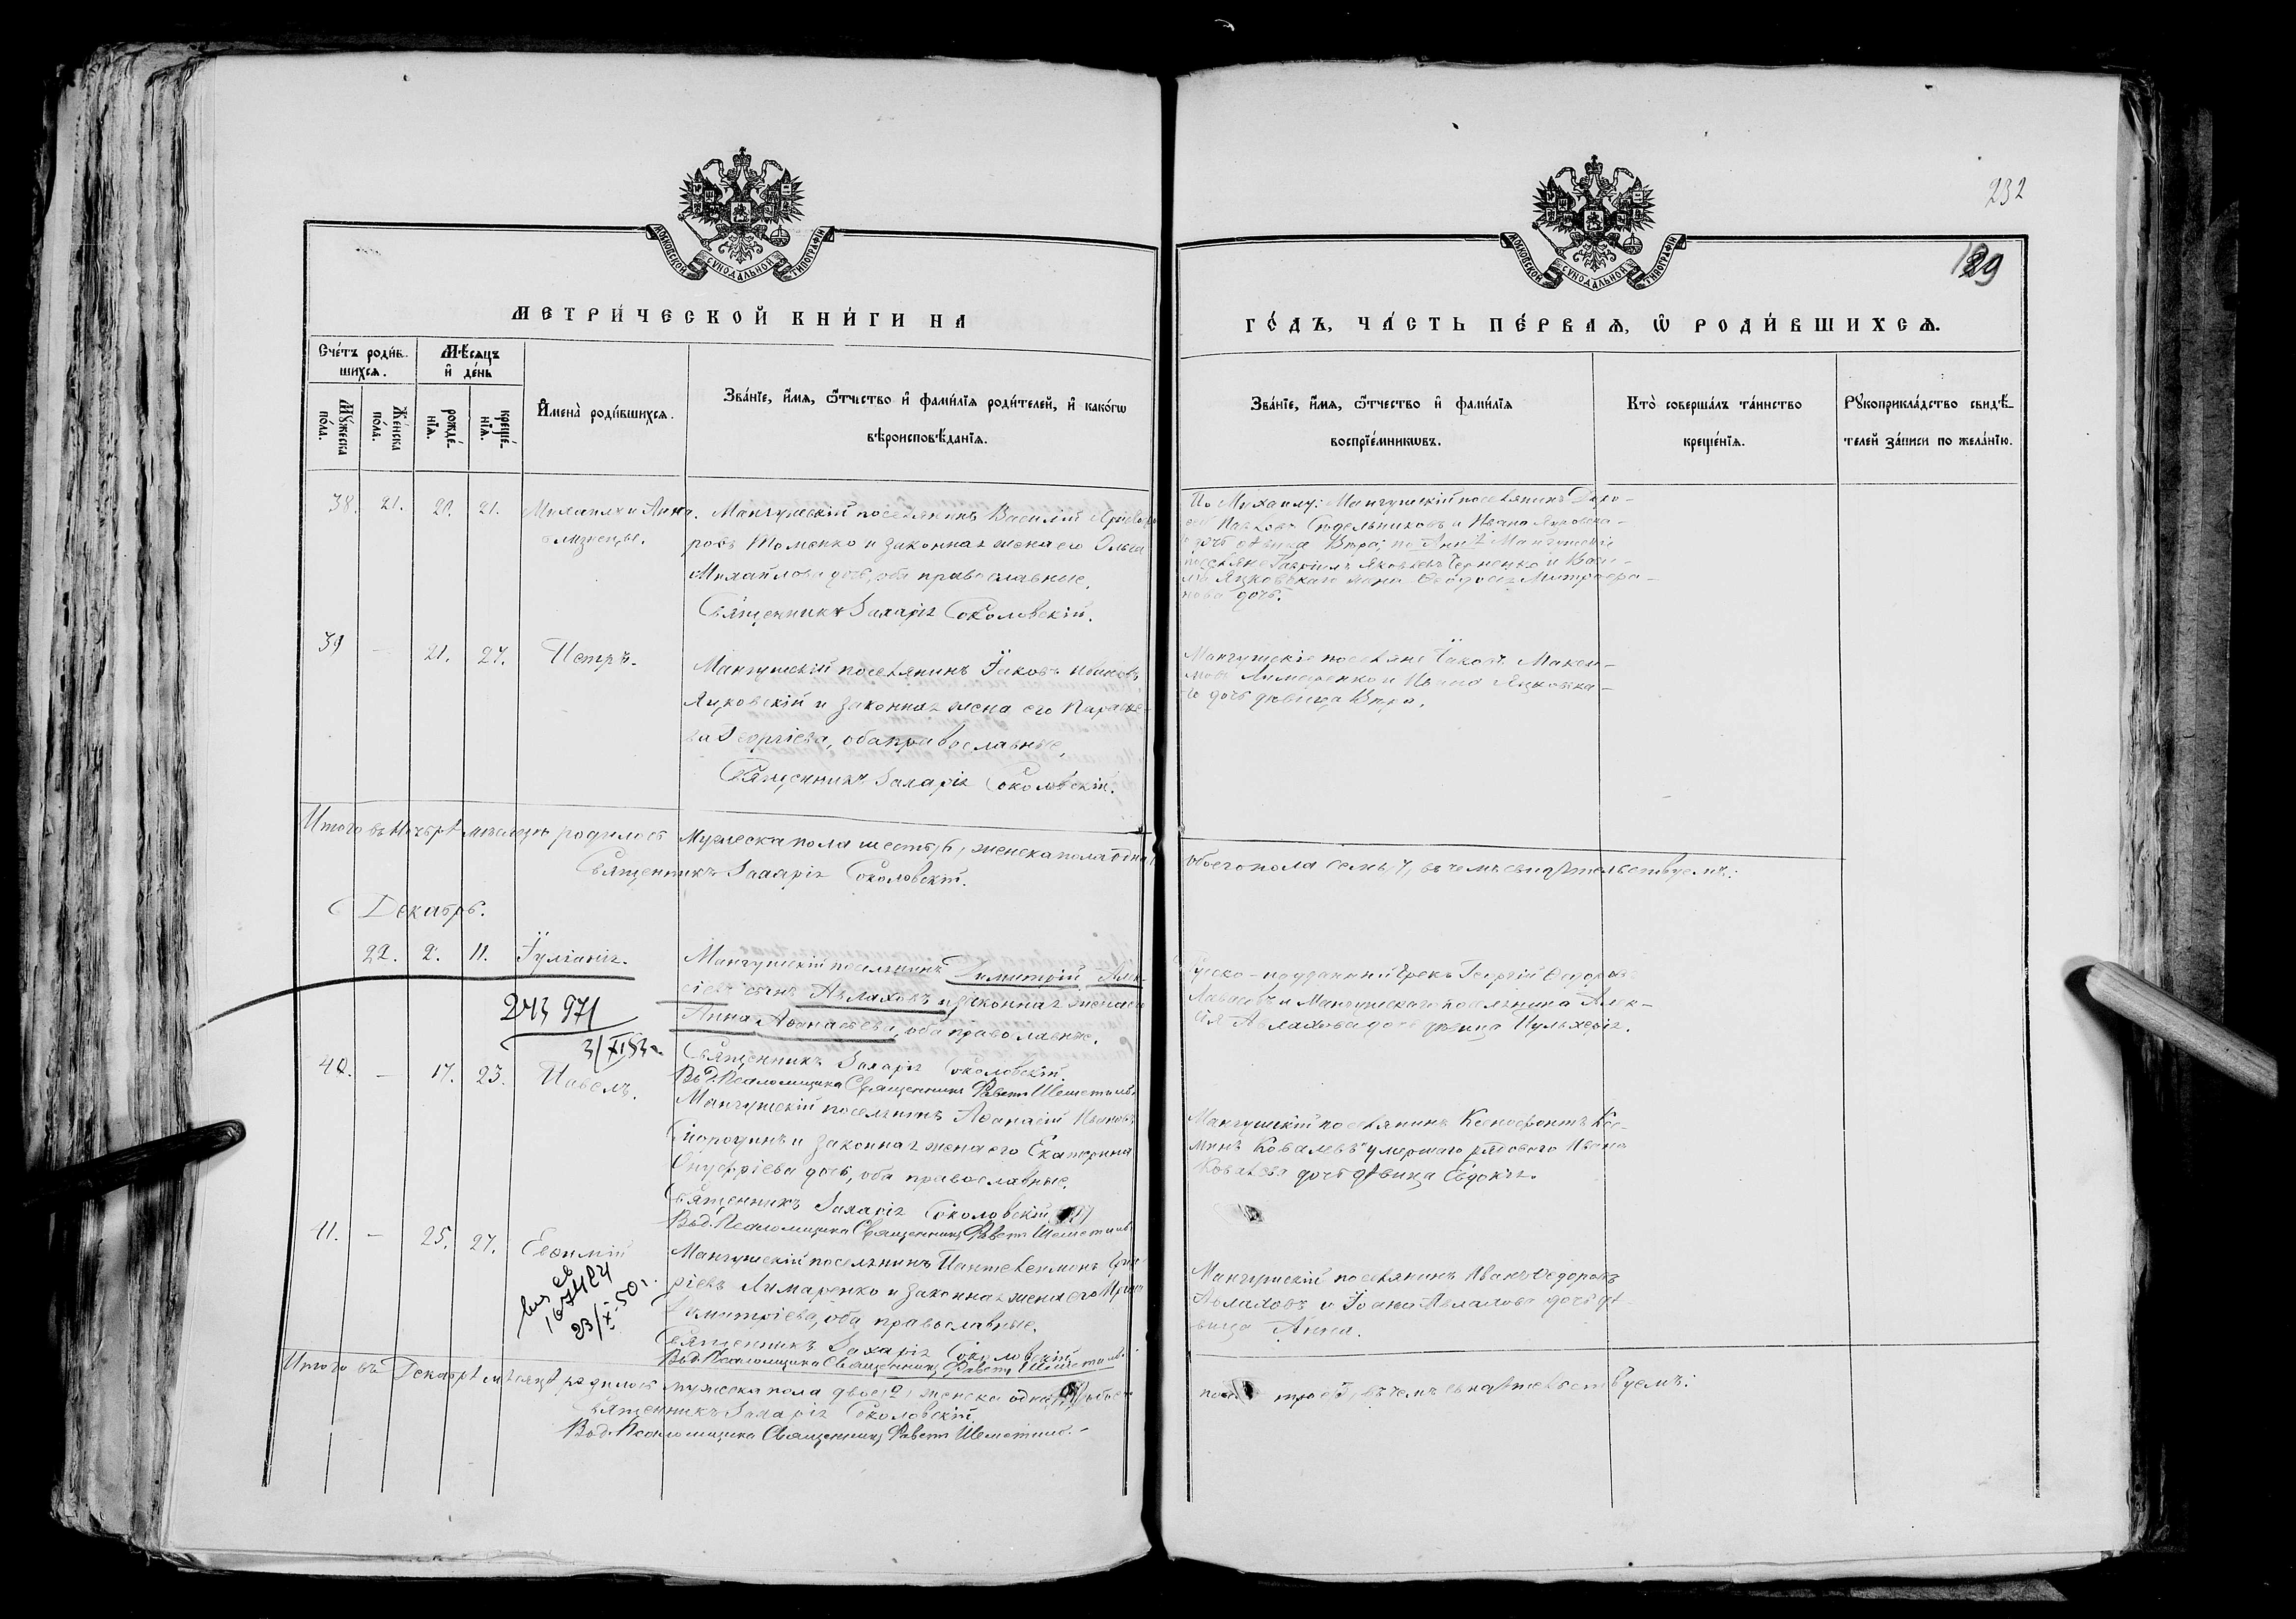 232
129
МОСКОВСКОЙ СУНОДАЛЬНОЙ ТИПОГРАФІИ
МОСКОВСКОЙ СУНОДАЛЬНОЙ ТИПОГРАФІИ
МЕТРИ́ЧЕСКОЙ КНИ́ГИ НА
ГО́ДЪ, ЧА́СТЬ ПЕ́РВАѦ, Ѡ РОДИ́ВШИХСѦ.
Сче́тъ роди́в-
шихсѧ.
Мѣ́сѧцъ
и҆ де́нь
Мꙋ́жеска
по́ла.
Же́нска
по́ла.
рожде́-
нїѧ.
креще́-
нїѧ.
И҆мена̀ роди́вшихсѧ.
Зва́нїе, и҆́мѧ, ѻ҆́тчество и҆ фами́лїѧ роди́телей, и҆ како́гѡ
вѣроисповѣ́данїѧ.
Зва́нїе, и҆́мѧ, ѻ҆́тчество и҆ фами́лїѧ
воспрїе́мникѡвъ.
Кто̀ соверша́лъ та́инство
креще́нїѧ.
Рꙋкоприкла́дство свидѣ́-
телей за́писи по жела́нїю.
38. 21. 21. 21. Михаилъ и Анна
близнецы.
Мангушскій поселянинъ Василій
Томенко и законная жена его Ольга
Михайлова дочь, оба православные.
Священникъ Захарія Соколовскій.
По Михаилу: Мангушскій поселянинъ
и Ивана Яцковска-
го дочь дѣвица Вѣра; по Аннѣ Мангушскіе
поселяне Гавріилъ Яковлевъ и
Яцковскаго жена Ѳеодосія Митрофа-
нова дочь.
39 — 21. 27. Петръ.
Мангушскій поселянинъ Іаковъ Ивановъ
Яцковскій и законная жена его Параске-
ва Георгіева, оба православные.
Священникъ Захарія Соколовскій.
Мангушскіе поселяне Іаковъ Макси-
мовъ Лимаренко и Ивана Яцковска-
го дочь дѣвица Вѣра.
Итого въ Ноябрѣ мѣсяцѣ родилось мужеска пола шесть, 6, женска пола одна, 1
обоего пола семь, 7, въ чемъ свидѣтельствуемъ:
Священникъ Захарія Соколовскій.
Декабрь.
22. 2. 11. Іуліанія.
Мангушскій поселянинъ Димитрій Алек-
сіевъ сынъ Авлаховъ и законная жена его
Анна Аѳанасьева, оба православные.
Священникъ Захарія Соколовскій
В. д. Псаломщика Священникъ Павелъ
Греко-подданный Грекъ Георгій Ѳедоровъ
и Мангушскаго поселянина Алек-
сія Авлахова дочь дѣвица Пульхерія.
243 971
3/XI 53 г.
40. — 17. 23. Павелъ.
Мангушскій поселянинъ Аѳанасій Ивановъ
и законная жена его Екатерина
Онуфріева дочь, оба православные.
Священникъ Захарія Соколовскій
В. д. Псаломщика Священникъ Павелъ
Мангушскій поселянинъ Ксенофонтъ Кос-
минъ Ковалевъ и умершаго рядового Ивана
Ковалева дочь дѣвица Евдокія.
41. — 25. 27. Евѳимій
Мангушскій поселянинъ Пантелеимонъ Григо-
ріевъ Лимаренко и законная жена его Ирина
Димитріева, оба православные.
Священникъ Захарія Соколовскій
В. д. Псаломщика Священникъ Павелъ
Мангушскій поселянинъ Иванъ Ѳедоровъ
Авлаховъ и Іоанна Авлахова дочь дѣ-
вица Анна.
167424
23/X 50 г.
Итого въ Декабрѣ мѣсяцѣ родилось мужеска пола двое, 2, женска одна, 1, обоего
пола трое, 3, въ чемъ свидѣтельствуемъ:
Священникъ Захарія Соколовскій.
В. д. Псаломщика Священникъ Павелъ